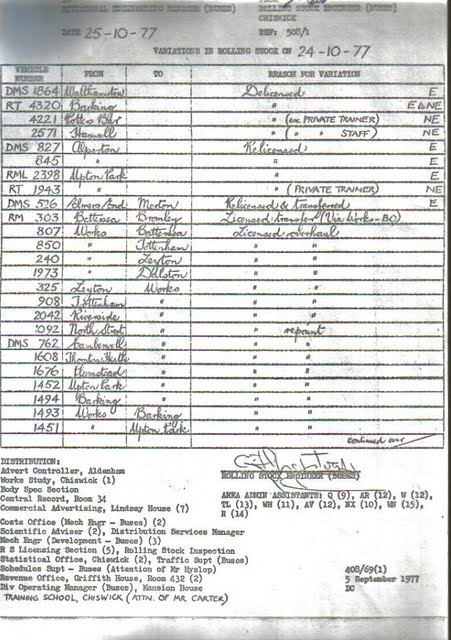 ROLLING STOCK ENGINEER (BUSES)
CHISWICK
DATE 25-10-77 REF: 508/1
VARIATIONS IN ROLLING STOCK ON 24-10-77
VEHICLE NUMBER FROM TO REASON FOR VARIATION
DMS 1864 Walthamstow Delicensed E
RT 4320 Barking " E & NE
4221 Potters Bar " (ex PRIVATE TRAINER) NE
2571 Hanwell " ( " STAFF) NE
DMS 827 Alperton Relicensed E
845 " " E
RML 2398 Upton Park " E
RT 1943 " " (PRIVATE TRAINER) NE
DMS 526 Elmers End Merton Relicensed & transferred E
RM 303 Battersea Bromley Licensed transfer (Via Works-BO)
807 Works Battersea Licensed overhaul
850 " Tottenham " "
240 " Leyton " "
1973 " Dalston " "
325 Leyton Works " "
908 Tottenham " " "
2042 Riverside " " "
1092 North Street " " repaint
DMS 762 Camberwell " " "
1608 Thornton Heath " " "
1676 Plumstead " " "
1452 Upton Park " " "
1494 Barking " " "
1493 Works Barking " "
1451 " Upton Park " "
continued over
DISTRIBUTION:
Advert Controller, Aldenham
Works Study, Chiswick (1)
Body Spec Section
Central Record, Room 34
Commercial Advertising, Lindsay House (7)
Costs Office (Mech Engr - Buses) (2)
Scientific Adviser (2), Distribution Services Manager
Mech Engr (Development - Buses) (3)
R S Licensing Section (5), Rolling Stock Inspection
Statistical Office, Chiswick (2), Traffic Supt (Buses)
Schedules Supt - Buses (Attention of Mr Hyslop)
Revenue Office, Griffith House, Room 432 (2)
Div Operating Manager (Buses), Mansion House
TRAINING SCHOOL, CHISWICK (ATTN. OF MR CARTER)
ROLLING STOCK ENGINEER (BUSES)
AREA ADMIN ASSISTANTS: Q (9), AR (12), W (12),
TL (13), WH (11), AV (12), NX (10), WN (15),
R (14)
408/69(1)
5 September 1977
DC